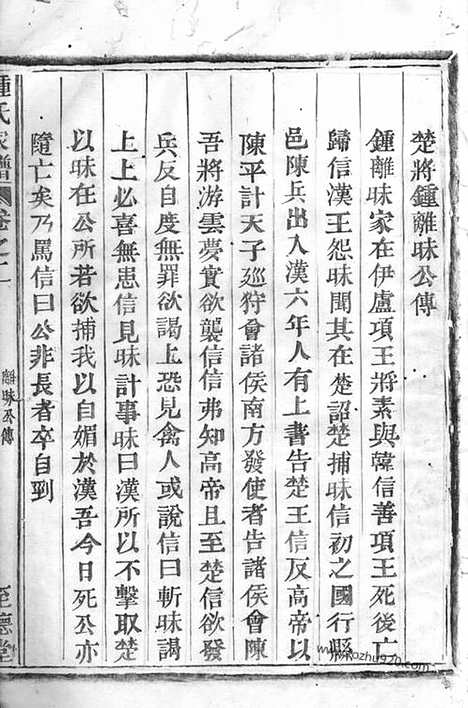 楚將鍾離昧公傳
鍾離昧家在伊廬項王將素與韓信善項王死後亡
歸信漢王怨昧聞其在楚詔楚捕昧信初之國行縣
邑陳兵出入漢六年人有上書告楚王信反高帝以
陳平計天子廵狩會諸侯南方發使者告諸侯會陳
吾將游雲夢實欲襲信信弗知高帝且至楚信欲發
兵反自度無罪欲謁上恐見禽人或說信曰斬昧謁
上上必喜無患信見昧計事昧曰漢所以不擊取楚
以昧在公所若欲捕我以自媚於漢吾今日死公亦
隨亡矣乃罵信曰公非長者卒自到
鍾氏家譜
卷之
離昧公傳
至德堂
www.kozhu920.com